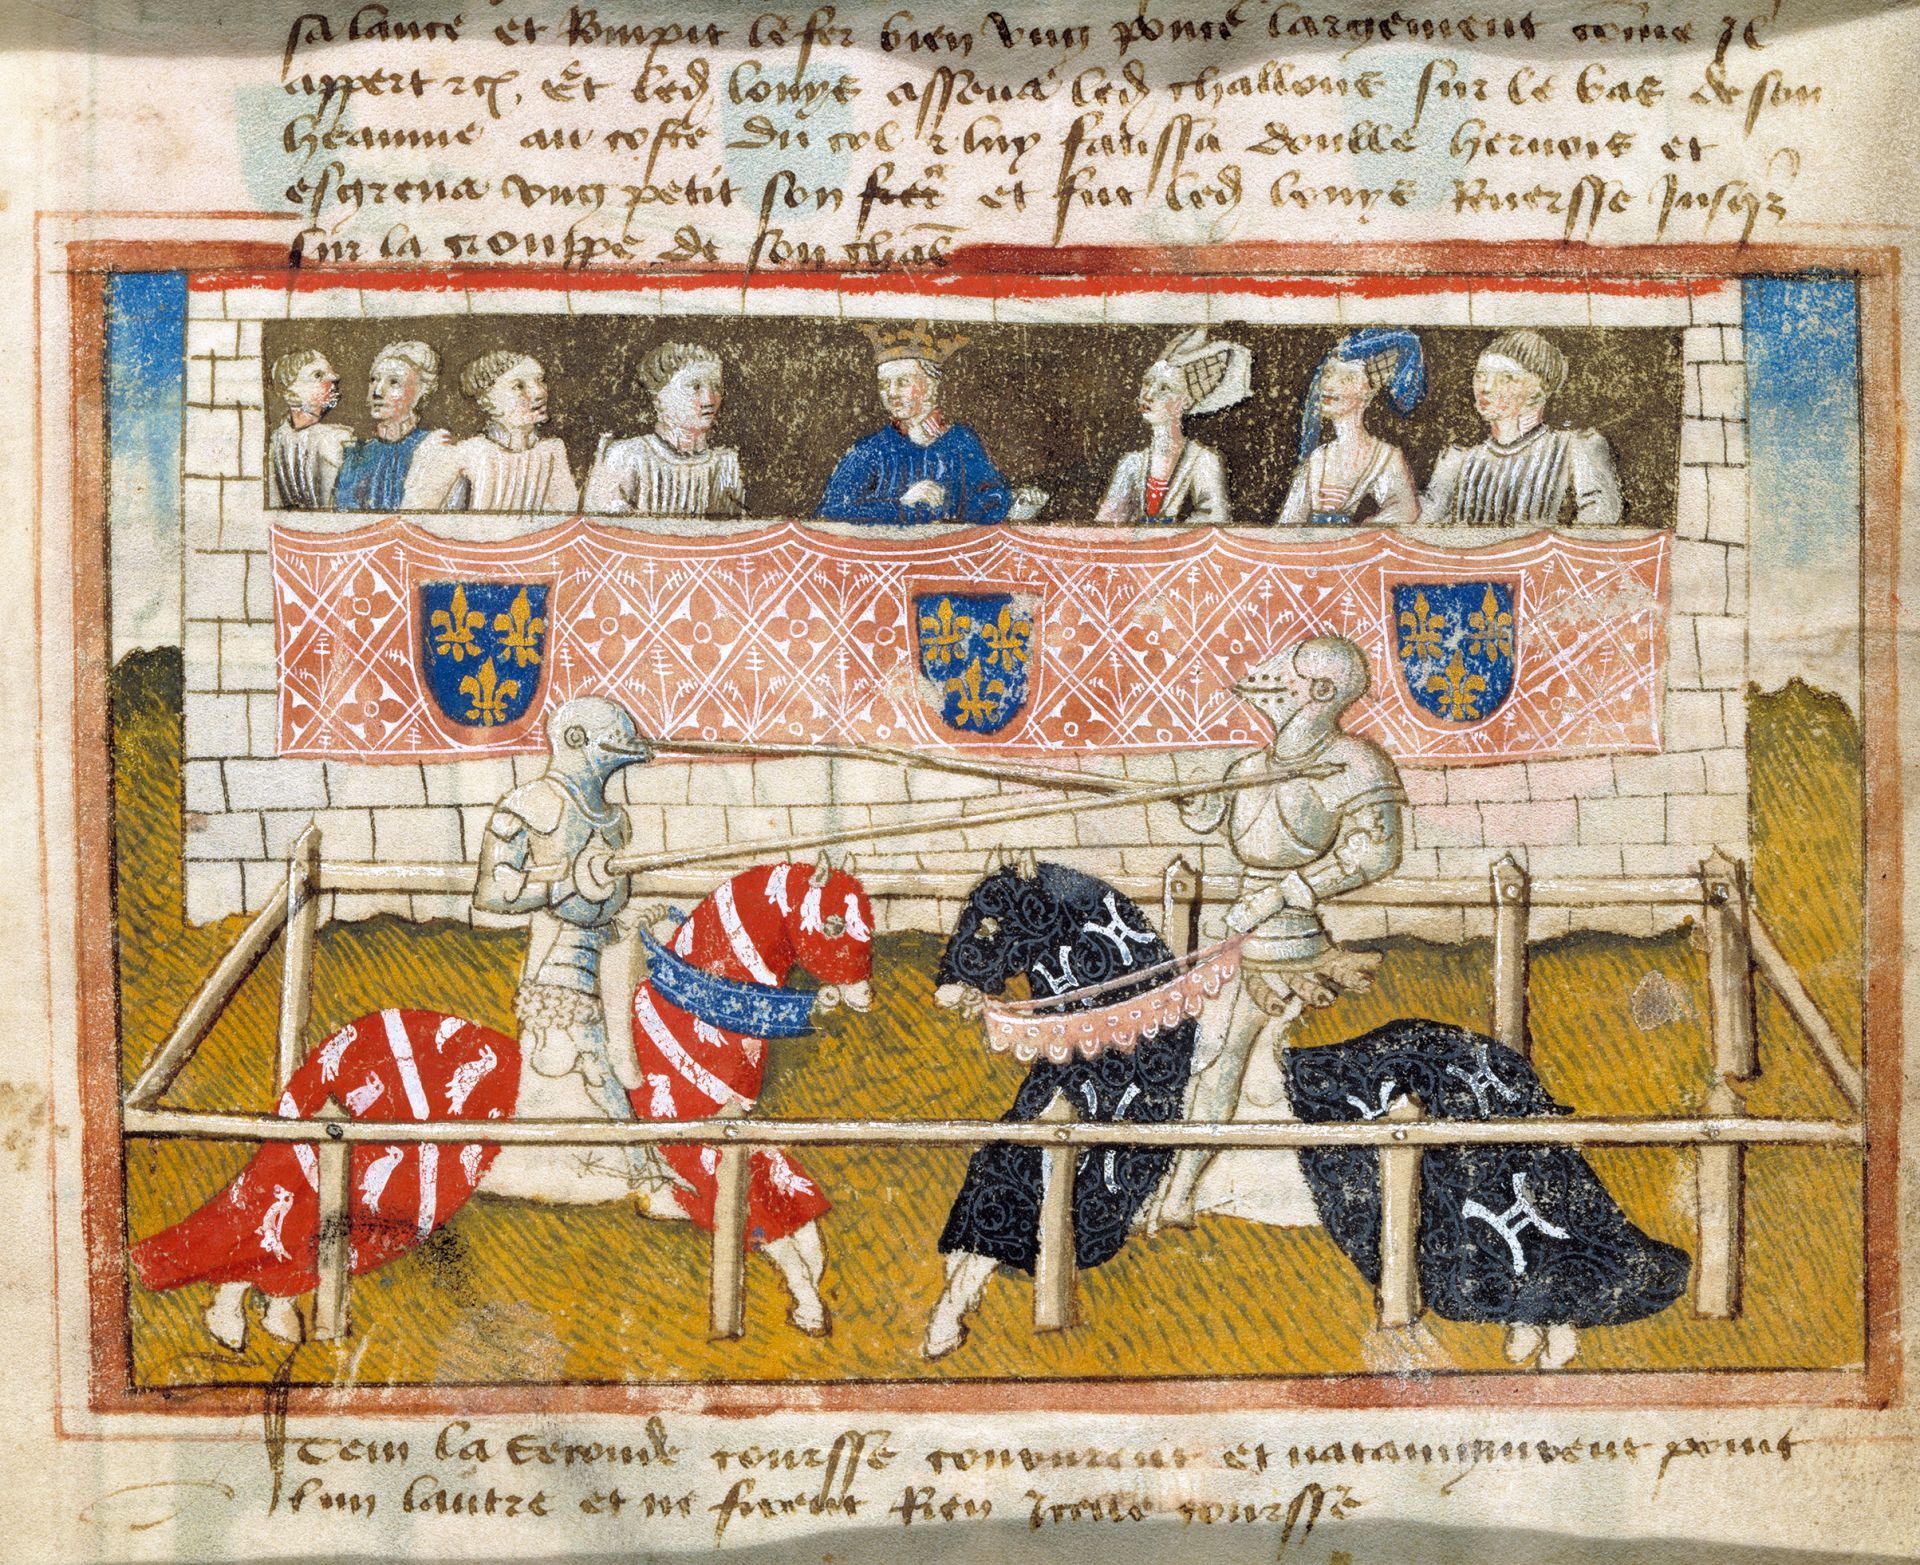 sa lance et Rompit le fer bien ung poure largement come Il
appert icy. Et led louys assena led challons sur le bas de son
heaume au coste du col & luy faussa doulle hernois et
esgrena ung petit son fer et fut led louys Renersse Jusqz
sur la crouppe de son chal
Item la Seconde coursse coururent et natamyruvent point
lun lautre et ne firent Rien Icelle coursse